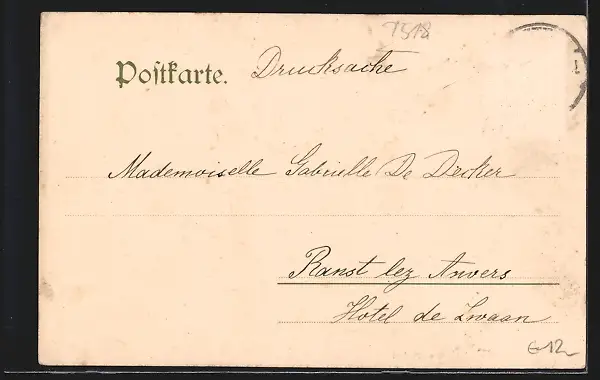 7518
Postkarte. Drucksache
Mademoiselle Gabrielle De Decker
Ranst lez Anvers
Hotel de Zwaan
G12